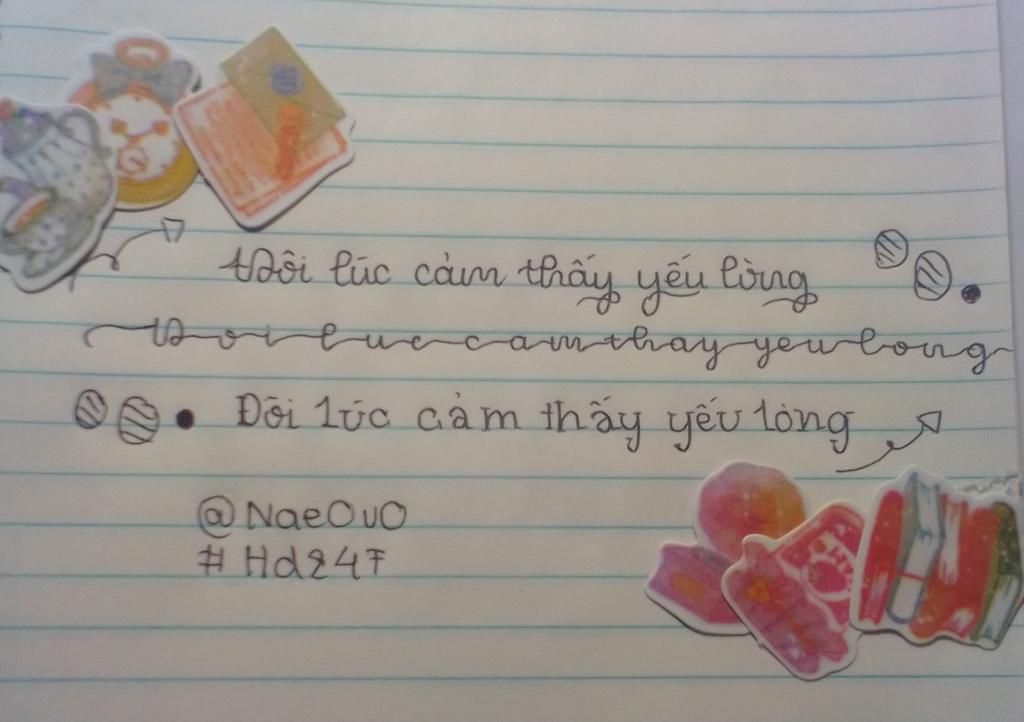 Đôi lúc cảm thấy yếu lòng
Doi luc cam thay yeu long
Đôi lúc cảm thấy yếu lòng
@NaeOuO
#Hd247